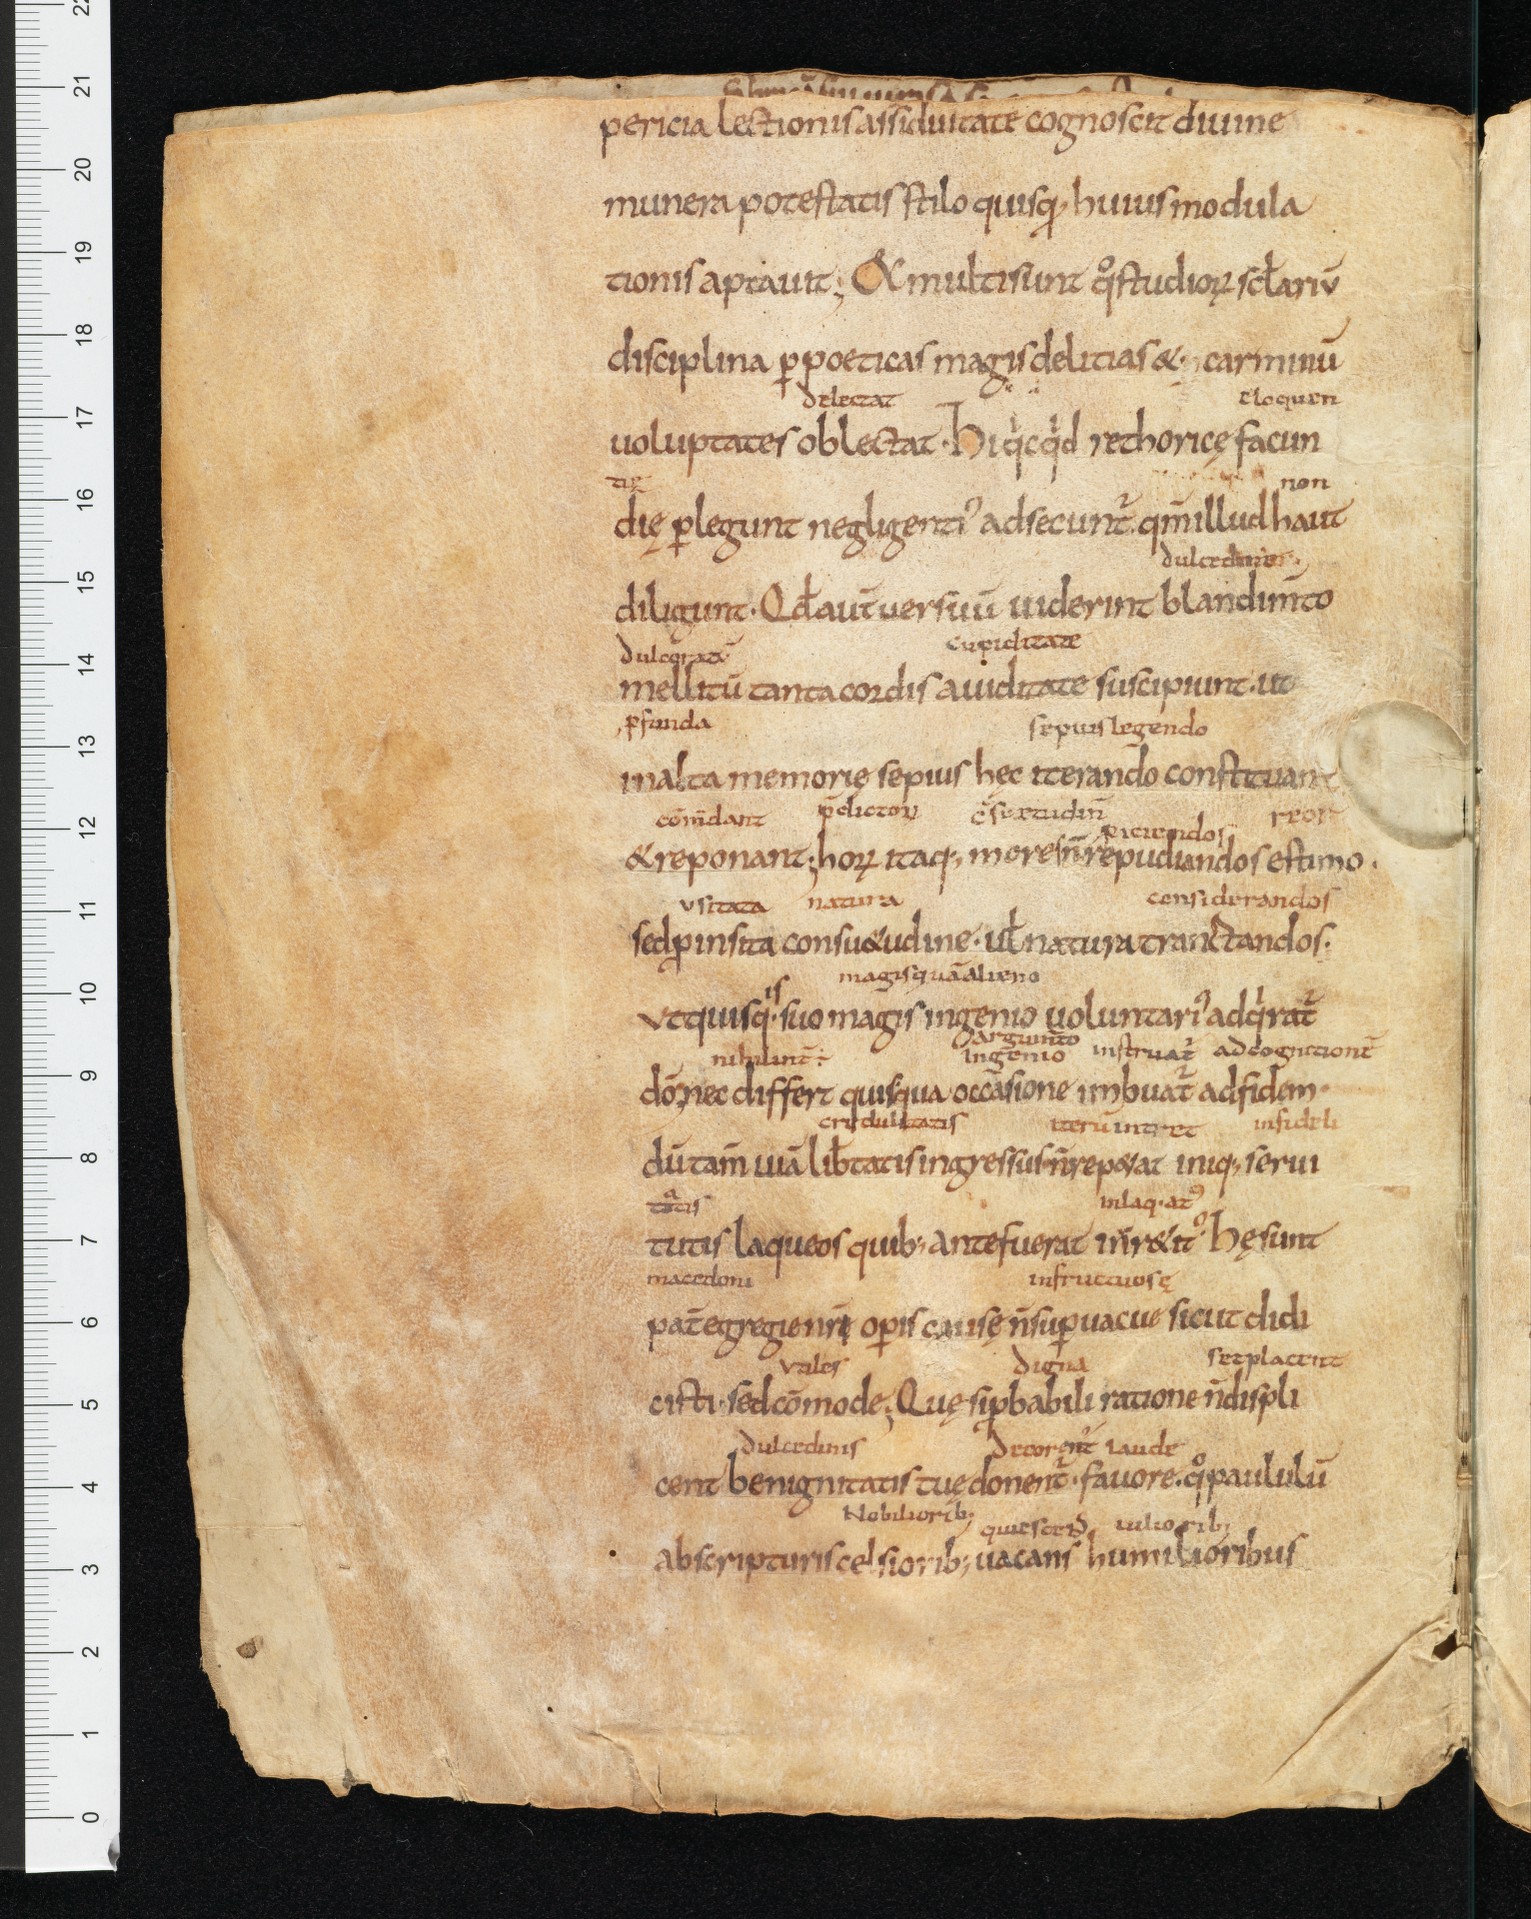 pericia lectionis assiduitate cognoscit diuine
munera potestatis stilo quisq; huius modula
tionis aptauit; & multi sunt q̊s studioꝝ scłariū
disciplina ꝑ poeticas magis delitias & carminū
delectat eloquen
uoluptates oblectat. Hi qͥcqͥd rethoricę facun
tię non
dię ꝑlegunt negligentiꝰ adsecunt᷑. qm̄ illud haut
dulcedine
diligunt. Qđ aut̄ uersuū uiderint blandim̄to
dulcoratū cupiditate
mellitū tanta cordis auiditate suscipiunt. ut
ꝓfunda sepius legendo
in alta memorię sepius hęc iterando constituant
cōm̄dant p̄dictoꝝ c̄suetudin̄ reiciendos reor
& reponant; hoꝝ itaq; mores n̄ repudiandos estimo.
usitata natura considerandos
sed ꝑ insita consu&udine. uł natura tractandos.
magis quā alieno
ut quisq; is suo magis ingenio uoluntariꝰ adqͥrat᷑
nihil int̄: argum̄to ingenio instruat᷑ ad cognitionē
dō; nec differt quis qua occāsione imbuat᷑ ad fidem.
credulitatis iterū intret infideli
dū tam̄ uiā lib̄tatis ingressus n̄ rep&at iniq; serui
tatis inlaq;atꝰ
tutis laqueos quib; ante fuerat irr&itꝰ. Hę sunt
macedoni infructuosę
pat̄ egregie nr̄ę oꝑis causę n̄ suꝑuacue sicut didi
utiles digna set placent
cisti. sed cōmode; Quę si ꝓbabili ratione n̄ displi
dulcedinis decorent᷑ laude
cent benignitatis tuę donent᷑. fauore. q̊ paululū
Nobiliorib; quiescens uiliorib;
ab scripturis celsiorib; uacans humilioribus